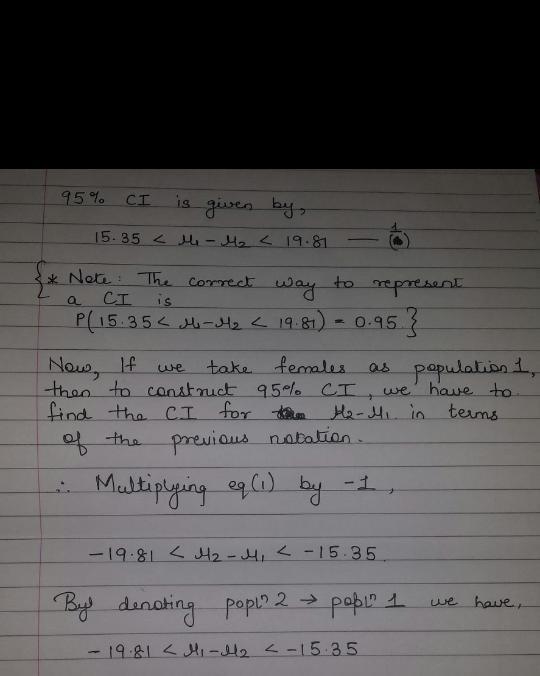 95% CI is given by,
15.35 < μ₁ - μ₂ < 19.81 — (1)
{* Note: The correct way to represent
a CI is
P(15.35 < μ₁ - μ₂ < 19.81) = 0.95.}
Now, If we take females as population 1,
then to construct 95% CI, we have to
find the CI for μ₂ - μ₁ in terms
of the previous notation.
∴ Multiplying eq(1) by -1,
-19.81 < μ₂ - μ₁ < -15.35
By denoting popl^n 2 → popl^n 1 we have,
-19.81 < μ₁ - μ₂ < -15.35